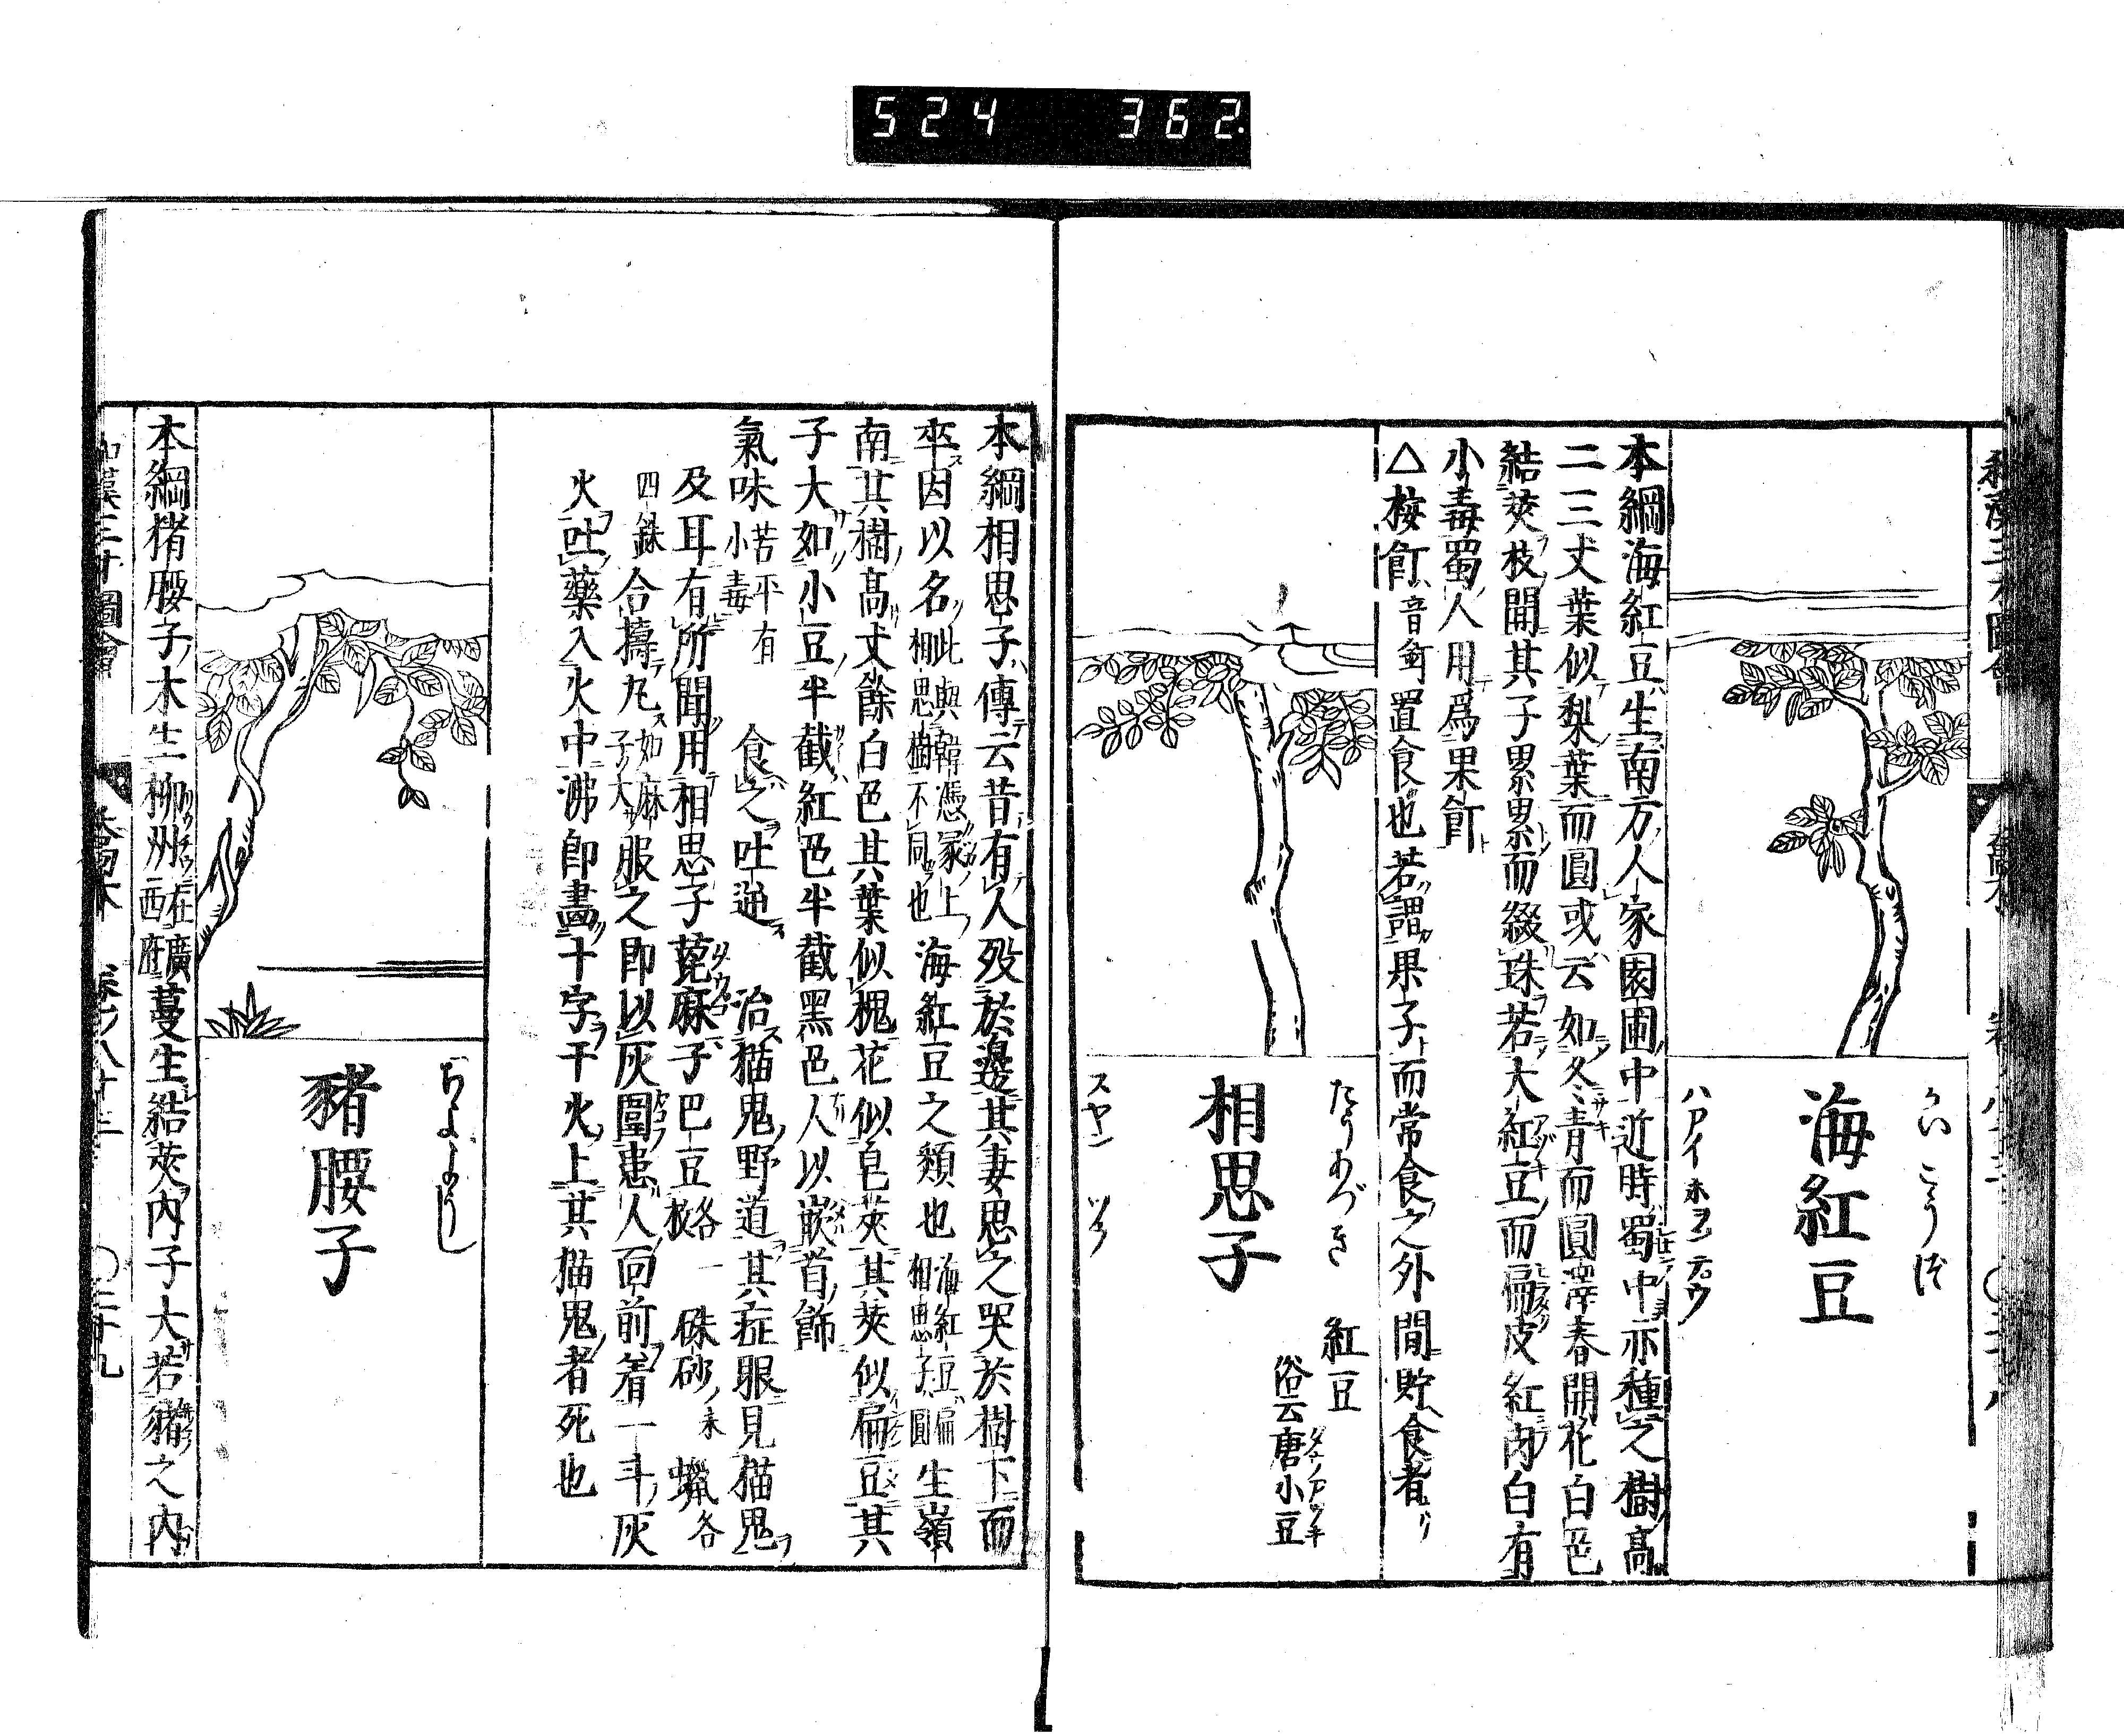 524 362
海紅豆
かい こうづ
ハアイ ホヲン テ○ウ
本綱海紅豆生南方人家園圃中近時蜀中亦種之樹高
二三丈葉似梨葉而圓或云如冬青而圓澤春開花白色
結莢枝間其子累累而綴珠若大紅豆而扁皮紅肉白有
小毒蜀人用爲果飣
△按飣音釘置食也若謂果子而常食之外間貯食者
相思子
たうあづき
紅豆
俗云唐小豆
スヤン ツウ
本綱相思子傳云昔有人歿於邊其妻思之哭於樹下而
卒因以名此與韓憑冢上相思樹不同也海紅豆之類也海紅豆扁相思子圓生嶺
南其樹高丈餘白色其葉似槐花似皂莢其莢似扁豆其
子大如小豆半截紅色半截黑色人以嵌首飾
氣味苦平有小毒 食之吐逆 治猫鬼野道其症眼見猫鬼
及耳有所聞用相思子蓖麻子巴豆各一枚硃砂末蠟各
四銖合擣丸如麻子大服之即以灰圍患人面前着一斗灰
火吐藥入火中沸即畫十字于火上其猫鬼者死也
豬腰子
ちよようし
本綱猪腰子木生柳州在廣西府蔓生結莢内子大若豬之内
和漢三才圖會 喬木 卷八十三 ○三十九